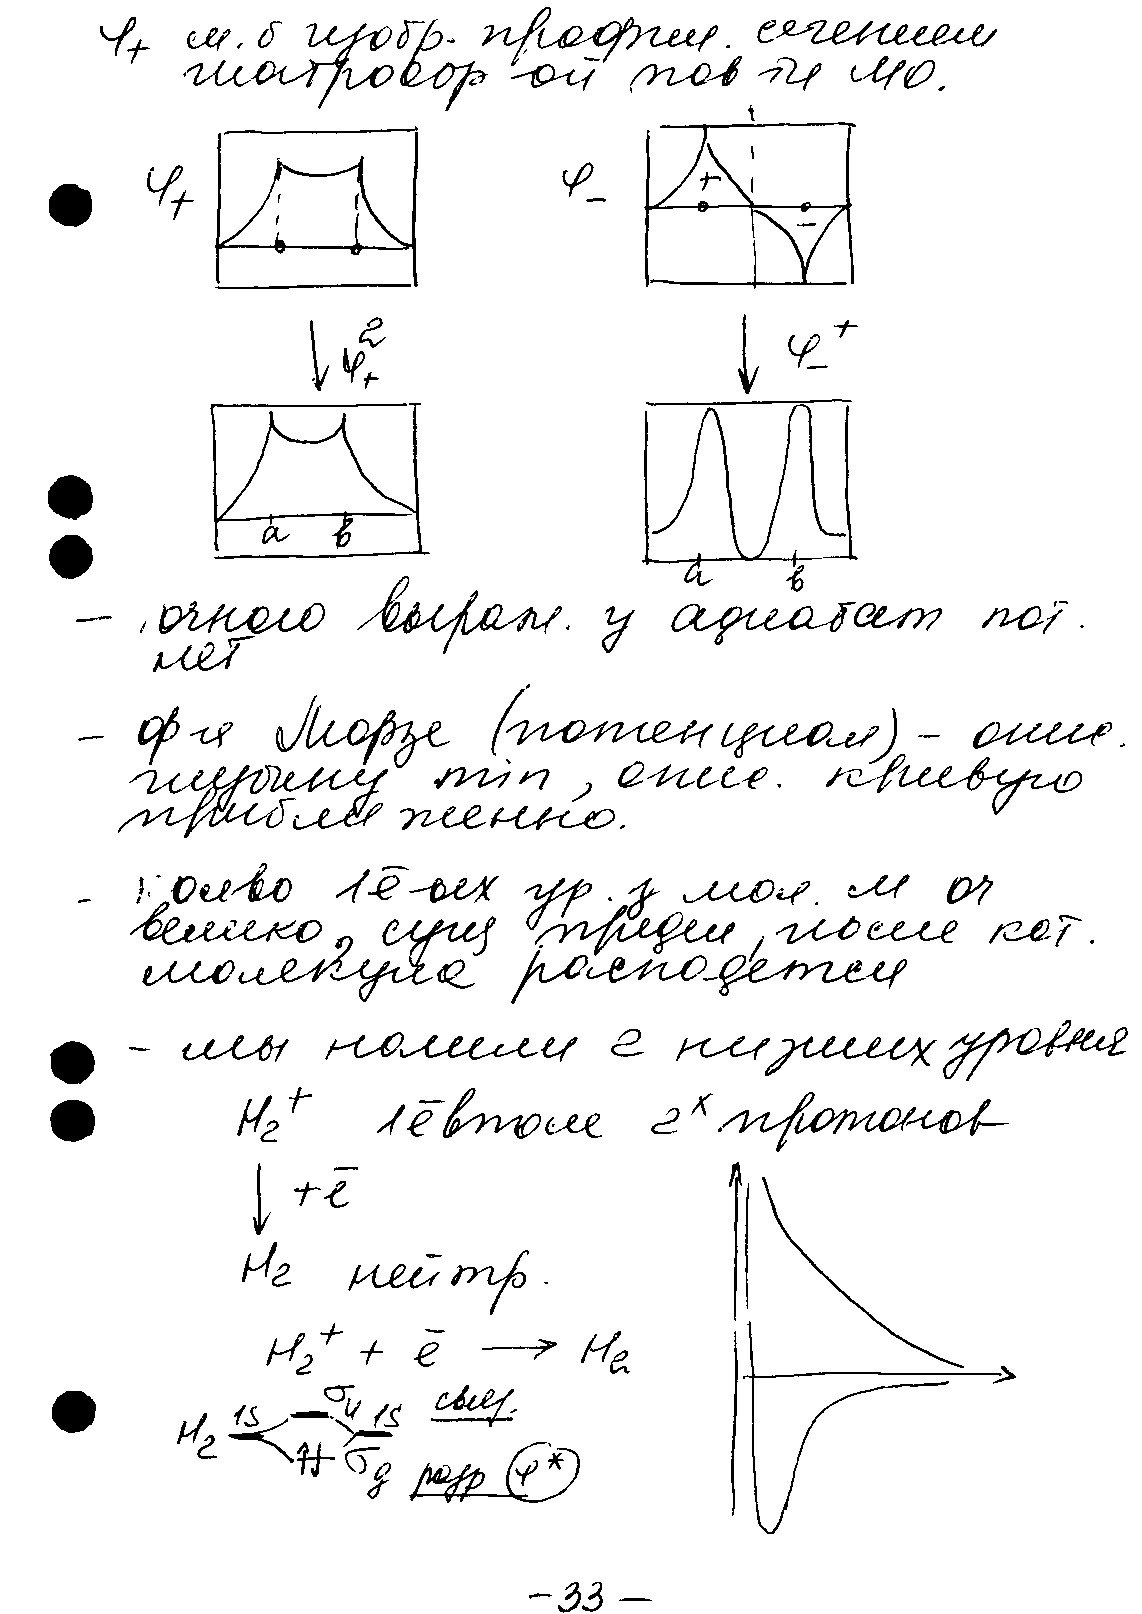 φ₊ м.б изобр. профил. сечением
шатровор-ой пов-ти МО.
φ₊ φ₋ + −
φ₊² φ₋⁺
a b a b
- очного выраж. у адиабат пот.
нет
- ф-я Морзе (потенциал) - опис.
глубину min, опис. кривую
приближенно.
- колво 1ē-ых ур. у мол. м оч
велико, сущ предел, после кот.
молекула распадется
- мы нашли 2 низших уровня
H₂⁺ 1ē в поле 2ˣ протонов
↓ +ē
H₂ нейтр.
H₂⁺ + ē → H₂
H₂ 1S σu 1S связ.
σg разр φ*
- 33 -